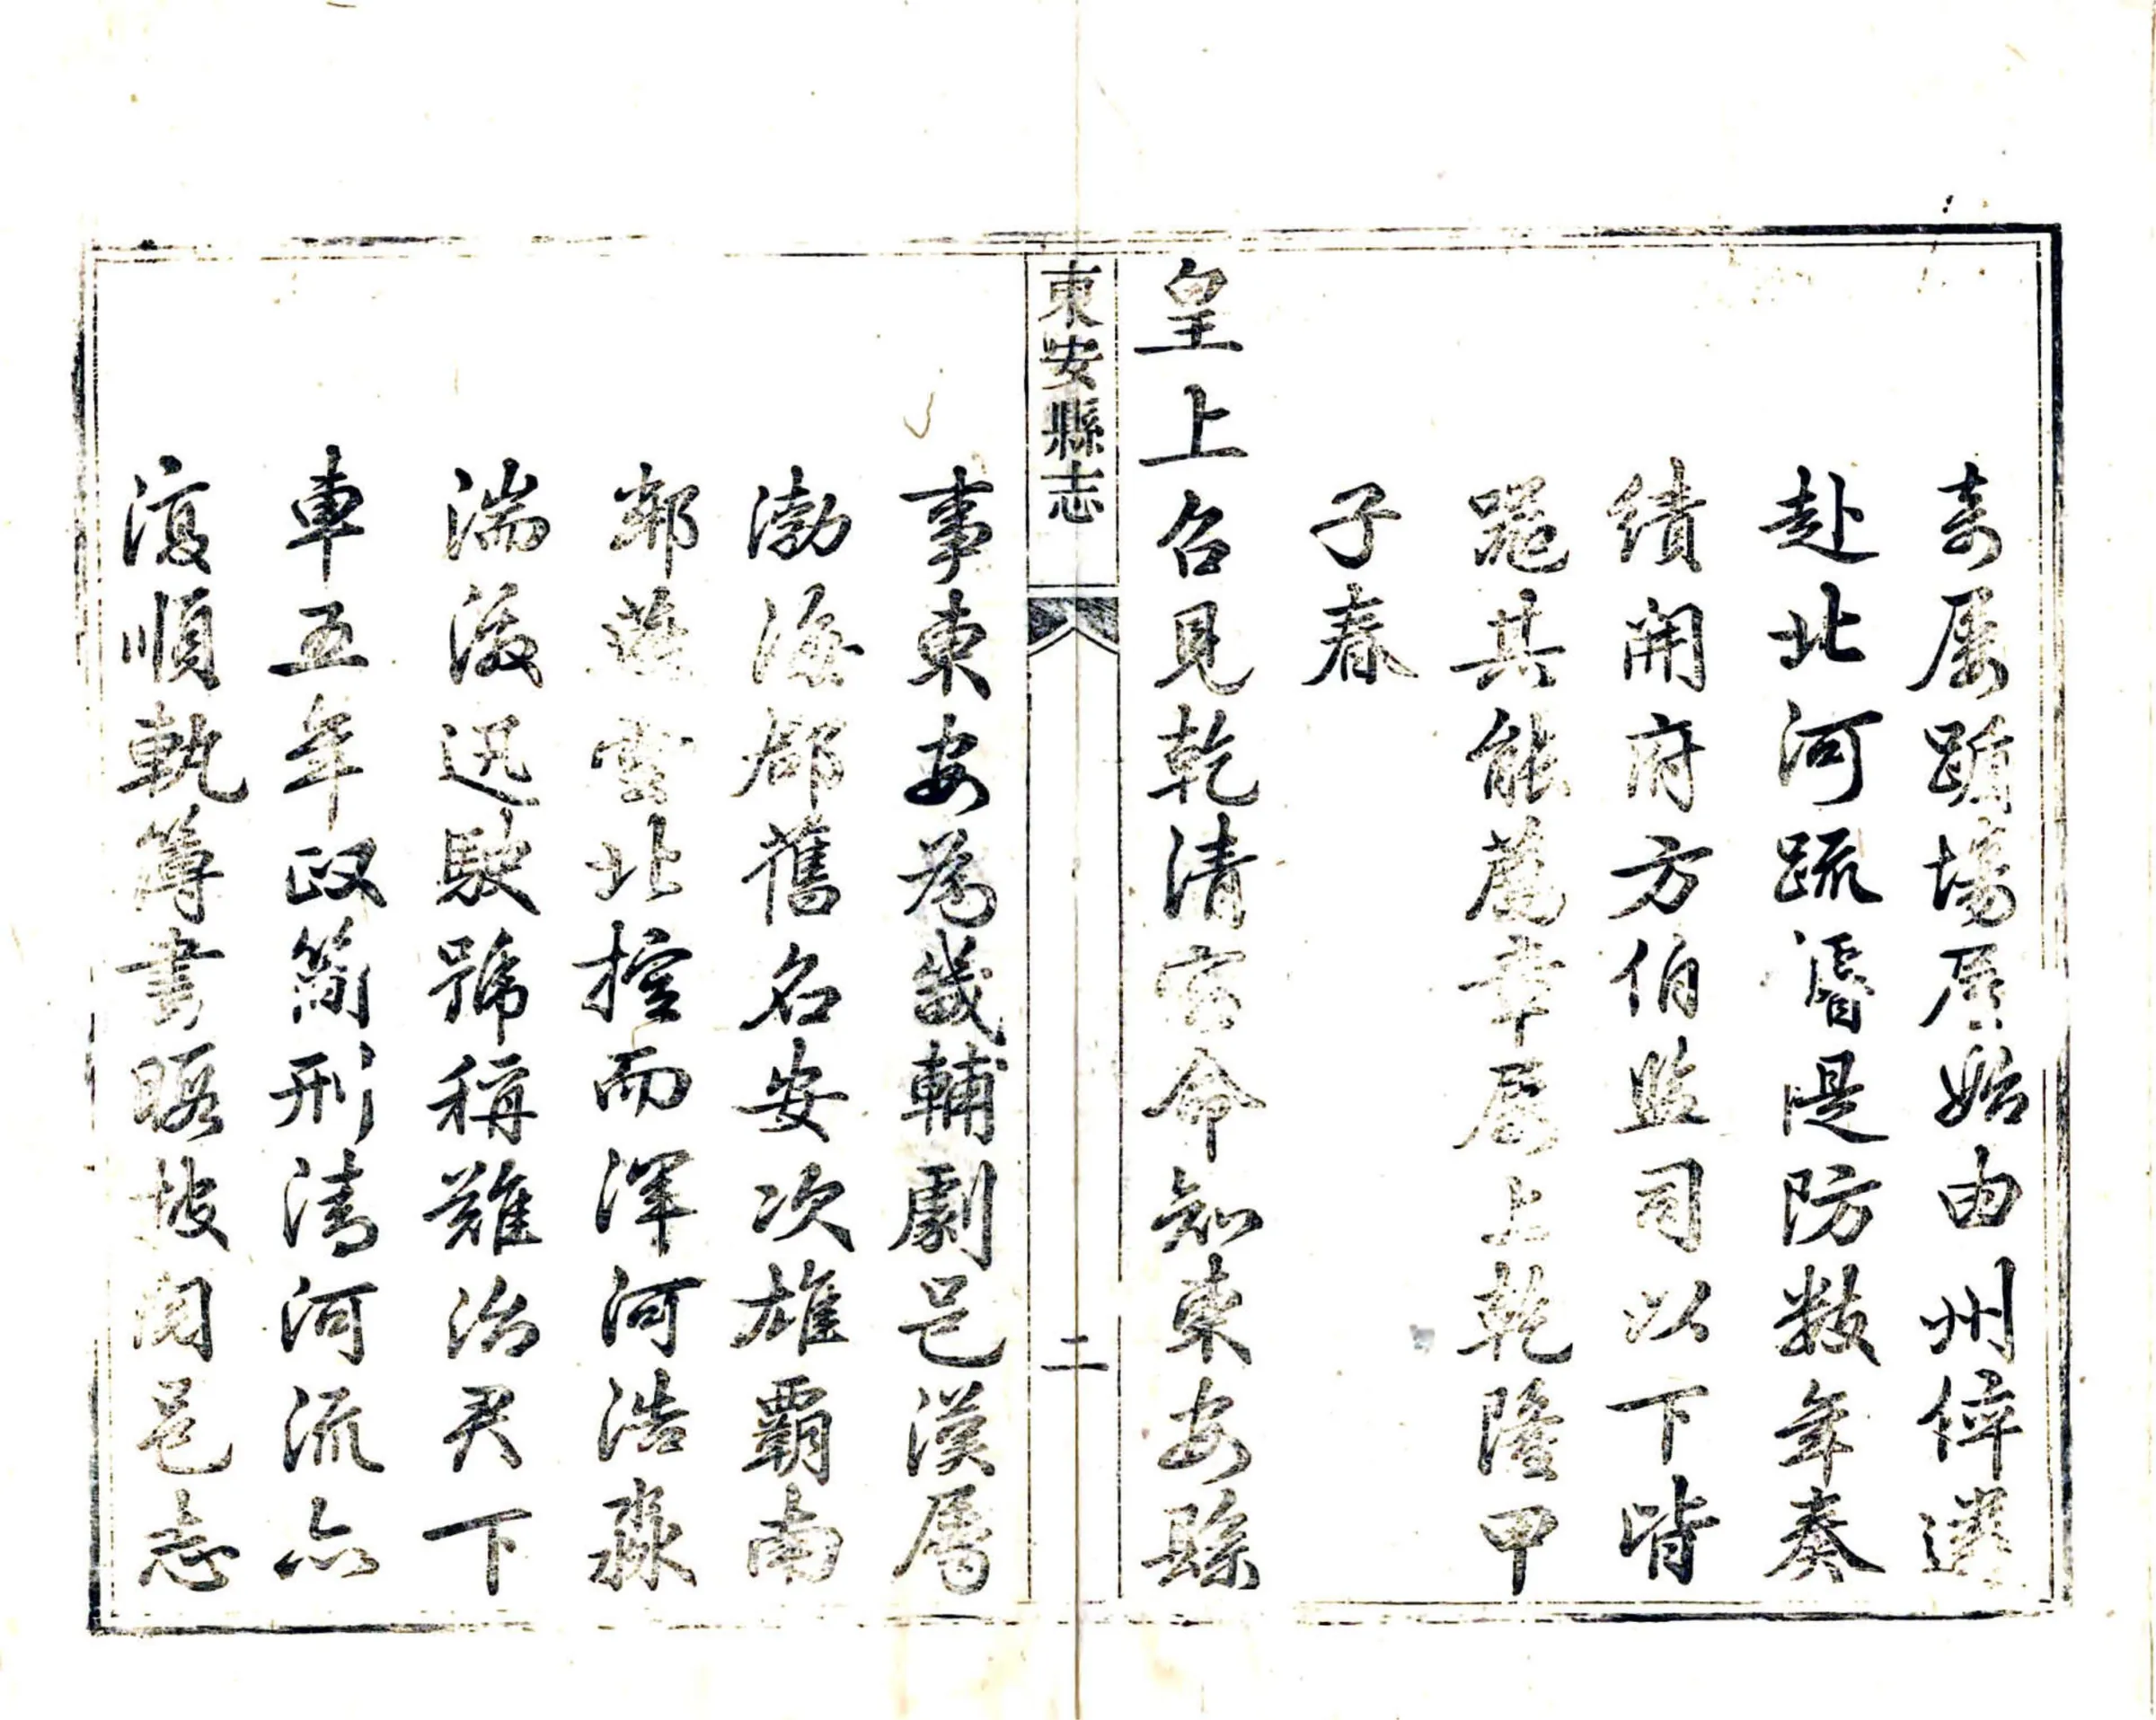 奇屢躓場屋始由州倅選
赴北河疏濬堤防數年奏
績開府方伯監司以下皆
羆其能薦章屢上乾隆甲
子春
皇上召見乾清宮命知東安縣
東安縣志
二
事東安為畿輔劇邑漢屬
渤海郡舊名安次雄霸南
鄰薊雲北控而渾河浩淼
湍激迅駛號稱難治君下
車五年政簡刑清河流亦
復順軌簿書暇披閱邑志